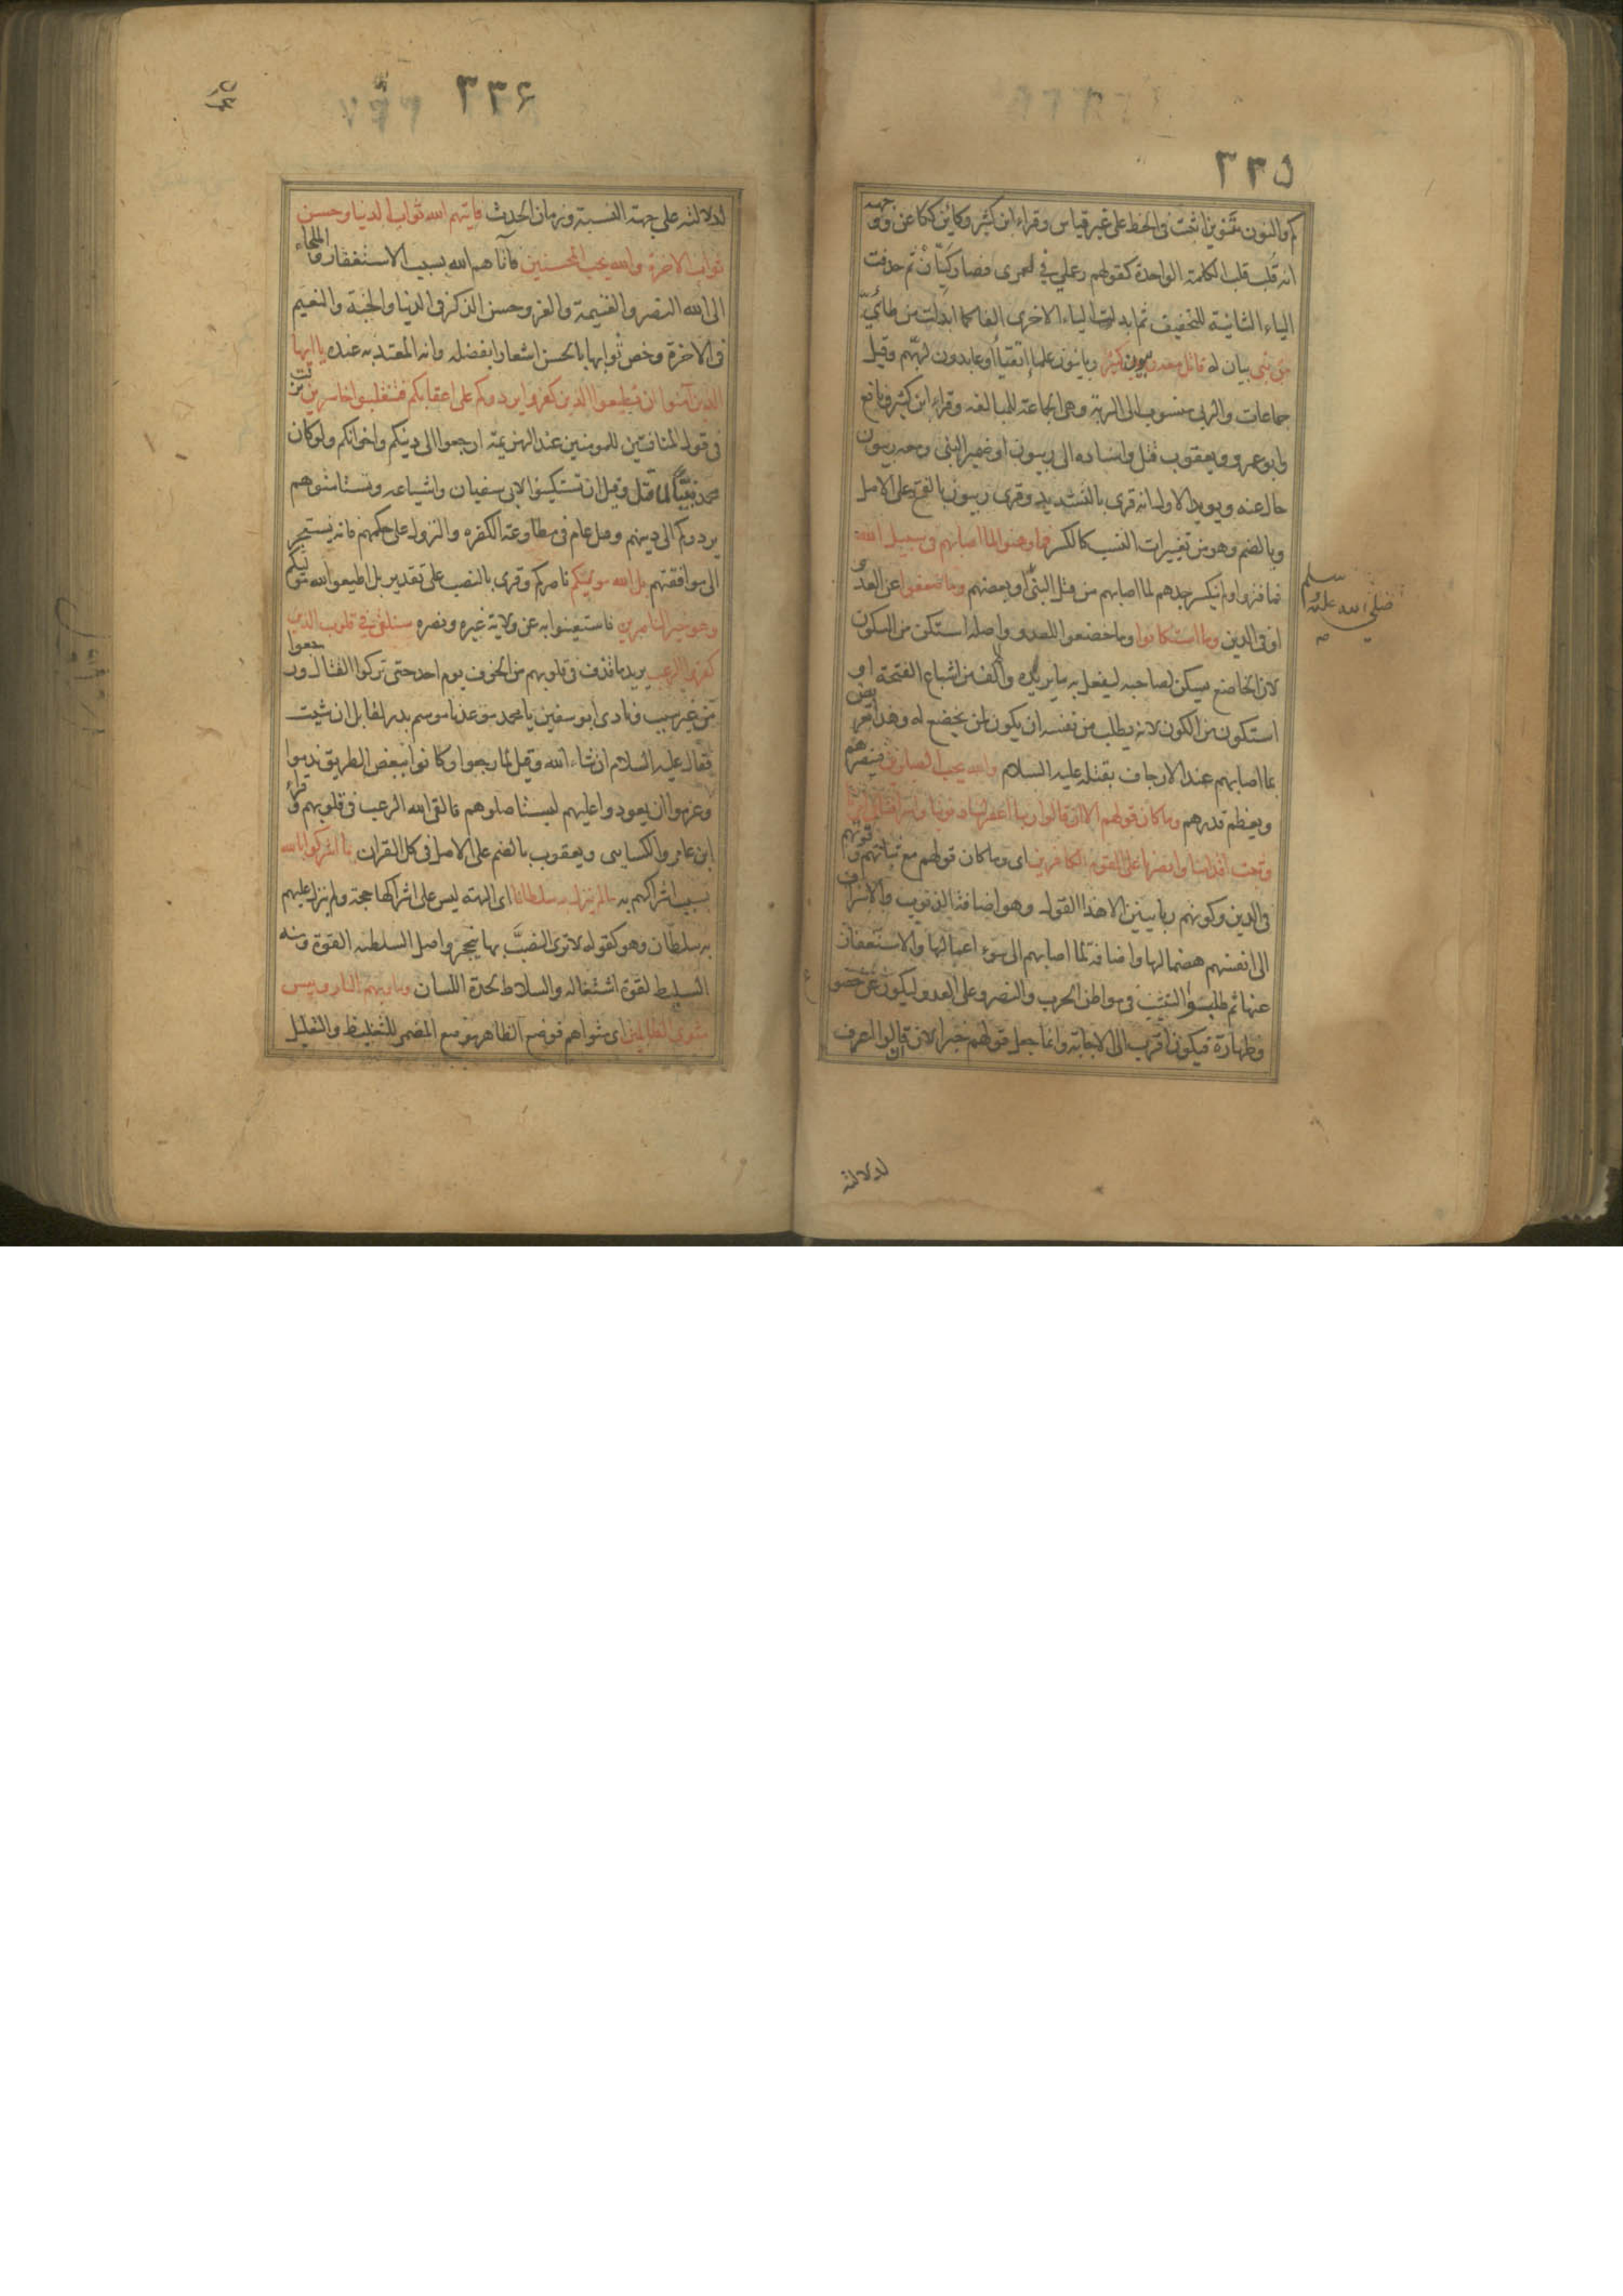 ٣٣٥
كم والنون تنوين اثبت في الخط على غير قياس وقراء ابن كثير وكائن ككاعن ووجهه
انه قلب قلب الكلمة الواحدة كقولهم رعملي في لعمري فصار كيّان ثم حذفت
الياء الثانية للتخفيف ثم ابدلت الياء الاخرى الفا كما ابدلت من طائيّ
من نبي بيان له قاتل معه ربيون كثير ربانيون علماء اتقياء او عابدون لربهم وقيل
جماعات والربي منسوب الى الربة وهي الجماعة للمبالغة وقراء ابن كثير ونافع
وابو عمرو ويعقوب قتل واسناده الى ربيون او ضمير النبي ومعه ربيون
حال عنه ويويد الاول انه قرى بالتشديد وقرى ربيون بالفتح على الاصل
وبالضم وهو من تغييرات النسب كالكسر فما وهنوا لما اصابهم في سبيل الله
فما فتروا ولم ينكسر جدهم لما اصابهم من قتل النبي او بعضهم وما ضعفوا عن العدو
او في الدين وما استكانوا وما خضعوا للعدو واصله استكن من السكون
لان الخاضع يسكن لصاحبه ليفعل به ما يريده والالف من اشباع الفتحة او
استكون من الكون لانه يطلب من نفسه ان يكون لمن يخضع له وهذا تعريض
بما اصابهم عند الارجاف بقتله عليه السلام والله يحب الصابرين فينصرهم
ويعظم قدرهم وما كان قولهم الا ان قالوا ربنا اغفر لنا ذنوبنا واسرافنا في امرنا
وثبت اقدامنا وانصرنا على القوم الكافرين اى وما كان قولهم مع ثباتهم وقوتهم
في الدين وكونهم ربانيين الا هذا القول وهو اضافة الذنوب والاسراف
الى انفسهم هضما لها واضافة لما اصابهم الى سوء اعمالها والاستغفار
عنها ثم طلبوا التثبيت في مواطن الحرب والنصر على العدو ليكون عن خضوع
وطهارة فيكون اقرب الى الاجابة وانما جعل قولهم خبرا لان ان قالوا اعرف
صلى الله عليه وسلم
صح
لدلالته
٣٣۶
لدلالته على جهة النسبة وزمان الحدث فاتيهم الله ثواب الدنيا وحسن
ثواب الاخرة والله يحب المحسنين فآتاهم الله بسبب الاستغفار واللجاء
الى الله النصر والغنيمة والعز وحسن الذكر في الدنيا والجنة والنعيم
في الاخرة وخص ثوابها بالحسن اشعارا بفضله وانه المعتد به عنده يا ايها
الذين آمنوا ان تطيعوا الذين كفروا يردوكم على اعقابكم فتنقلبوا خاسرين نزلت
في قول المنافقين للمومنين عند الهزيمة ارجعوا الى دينكم واخوانكم ولو كان
محمد نبيّاً لما قتل وقيل ان تستكينوا لابي سفيان واشياعه وتستامنوهم
يردوكم الى دينهم وقيل عام في مطاوعة الكفره والنزول على حكمهم فانه يستجر
الى موافقتهم بل الله موليكم ناصركم وقرى بالنصب على تقدير بل اطيعوا الله موليكم
وهو خير الناصرين فاستغنوا به عن ولاية غيره ونصره سنلقي في قلوب الذين
كفروا الرعب يريد ما قذف في قلوبهم من الخوف يوم احد حتى تركوا القتال ورجعوا
من غير سبب ونادى ابو سفين يا محمد موعدنا موسم بدر لقابل ان شيت
فقال عليه السلام ان شاء الله وقيل لما رجعوا وكانوا ببعض الطريق ندموا
وعزموا ان يعودوا عليهم ليستاصلوهم فالقى الله الرعب في قلوبهم وقراء
ابن عامر والكسايى ويعقوب بالضم على الاصل في كل القران بما اشركوا بالله
بسبب اشراكهم به ما لم ينزل به سلطانا اى الهة ليس على اشراكها حجة ولم ينزل عليهم
به سلطان وهو كقوله لا ترى الضبّ بها ينجحر واصل السلطنه القوة ومنه
السليط لقوة اشتعاله والسلاطة لحدة اللسان وماويهم النار وبيس
مثوى الظالمين اى مثواهم فوضع الظاهر موضع المضمر للتغليظ والتعليل